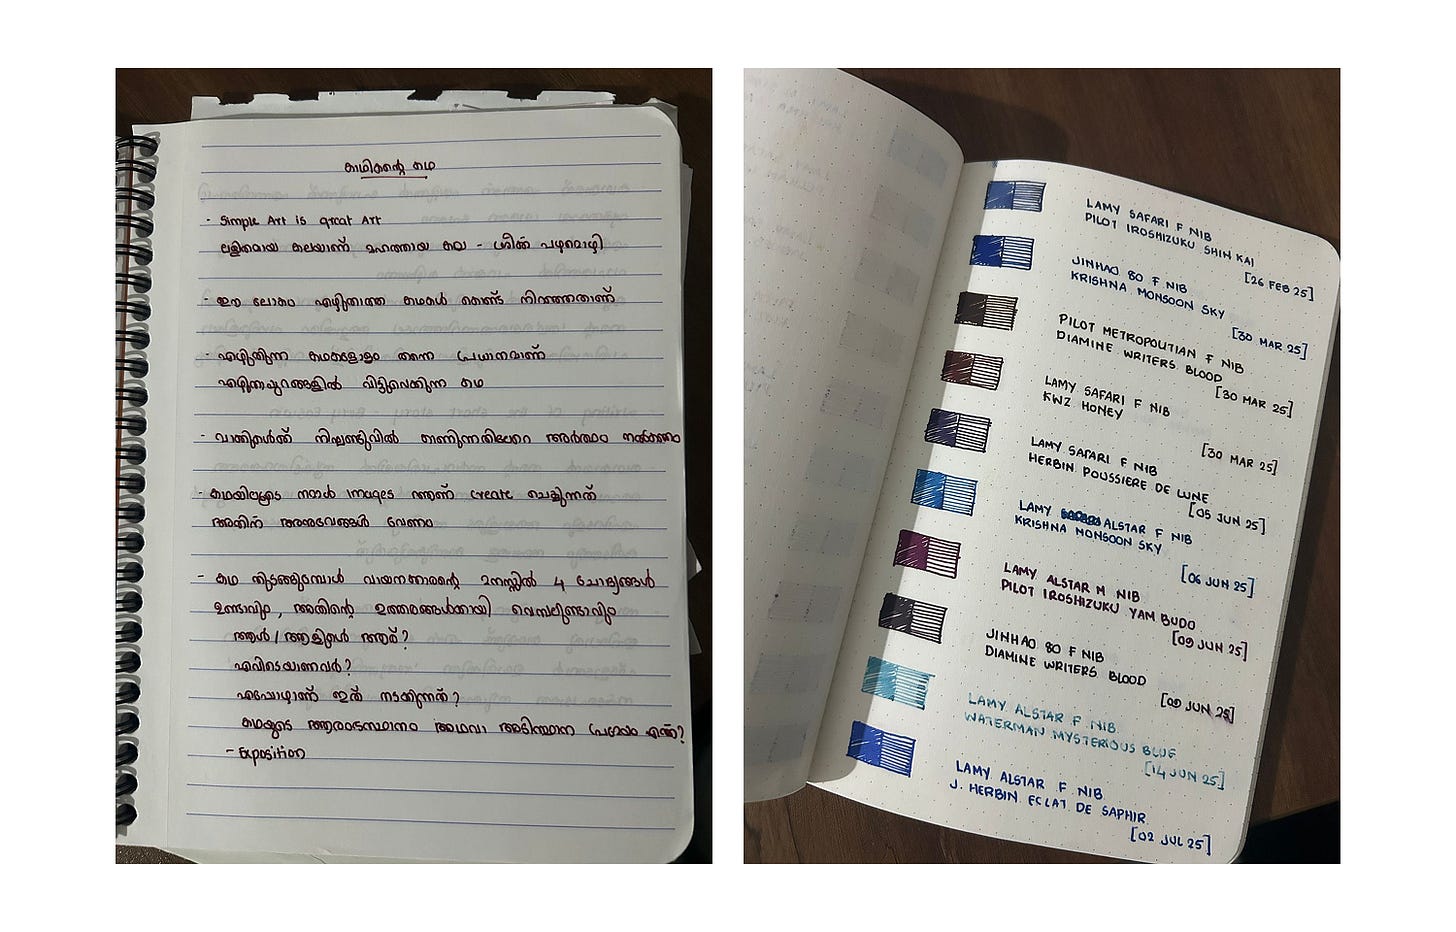 കാഥികന്റെ കഥ
- Simple Art is great Art
ലളിതമായ കലയാണ് മഹത്തായ കല - ഗ്രീക്ക് പഴമൊഴി
- ഈ ലോകം എഴുതാത്ത കഥകൾ കൊണ്ട് നിറഞ്ഞതാണ്
- എഴുതുന്ന കഥകളോളം തന്നെ പ്രധാനമാണ്
എഴുത്തുപുറങ്ങളിൽ വിട്ടുവെക്കുന്ന കഥ
- വാക്കുകൾക്ക് നിഘണ്ടുവിൽ കാണുന്നതിലേറെ അർത്ഥം നൽകണം
- കഥയിലൂടെ നാൽ images ആണ് create ചെയ്യുന്നത്
അതിന് അനുഭവങ്ങൾ വേണം
- കഥ തുടങ്ങുമ്പോൾ വായനക്കാരന്റെ മനസ്സിൽ 4 ചോദ്യങ്ങൾ
ഉണ്ടാവും, അതിന്റെ ഉത്തരങ്ങൾക്കായി വെമ്പലുണ്ടാവും
ആൾ/ആളുകൾ ആര്?
എവിടെയാണവർ?
എപ്പോഴാണ് ഇത് നടക്കുന്നത്?
കഥയുടെ ആരംഭസ്ഥാനം അഥവാ അടിസ്ഥാന പ്രമേയം എന്ത്?
- Exposition
LAMY SAFARI F NIB
PILOT IROSHIZUKU SHIN KAI
[26 FEB 25]
JINHAO 80 F NIB
KRISHNA MONSOON SKY
[30 MAR 25]
PILOT METROPOLITIAN F NIB
DIAMINE WRITERS BLOOD
[30 MAR 25]
LAMY SAFARI F NIB
KWZ HONEY
[30 MAR 25]
LAMY SAFARI F NIB
HERBIN POUSSIERE DE LUNE
[05 JUN 25]
LAMY ALSTAR F NIB
KRISHNA MONSOON SKY
[06 JUN 25]
LAMY ALSTAR M NIB
PILOT IROSHIZUKU YAM BUDO
[09 JUN 25]
JINHAO 80 F NIB
DIAMINE WRITERS BLOOD
[09 JUN 25]
LAMY ALSTAR F NIB
WATERMAN MYSTERIOUS BLUE
[14 JUN 25]
LAMY ALSTAR F NIB
J. HERBIN ECLAT DE SAPHIR
[02 JUL 25]